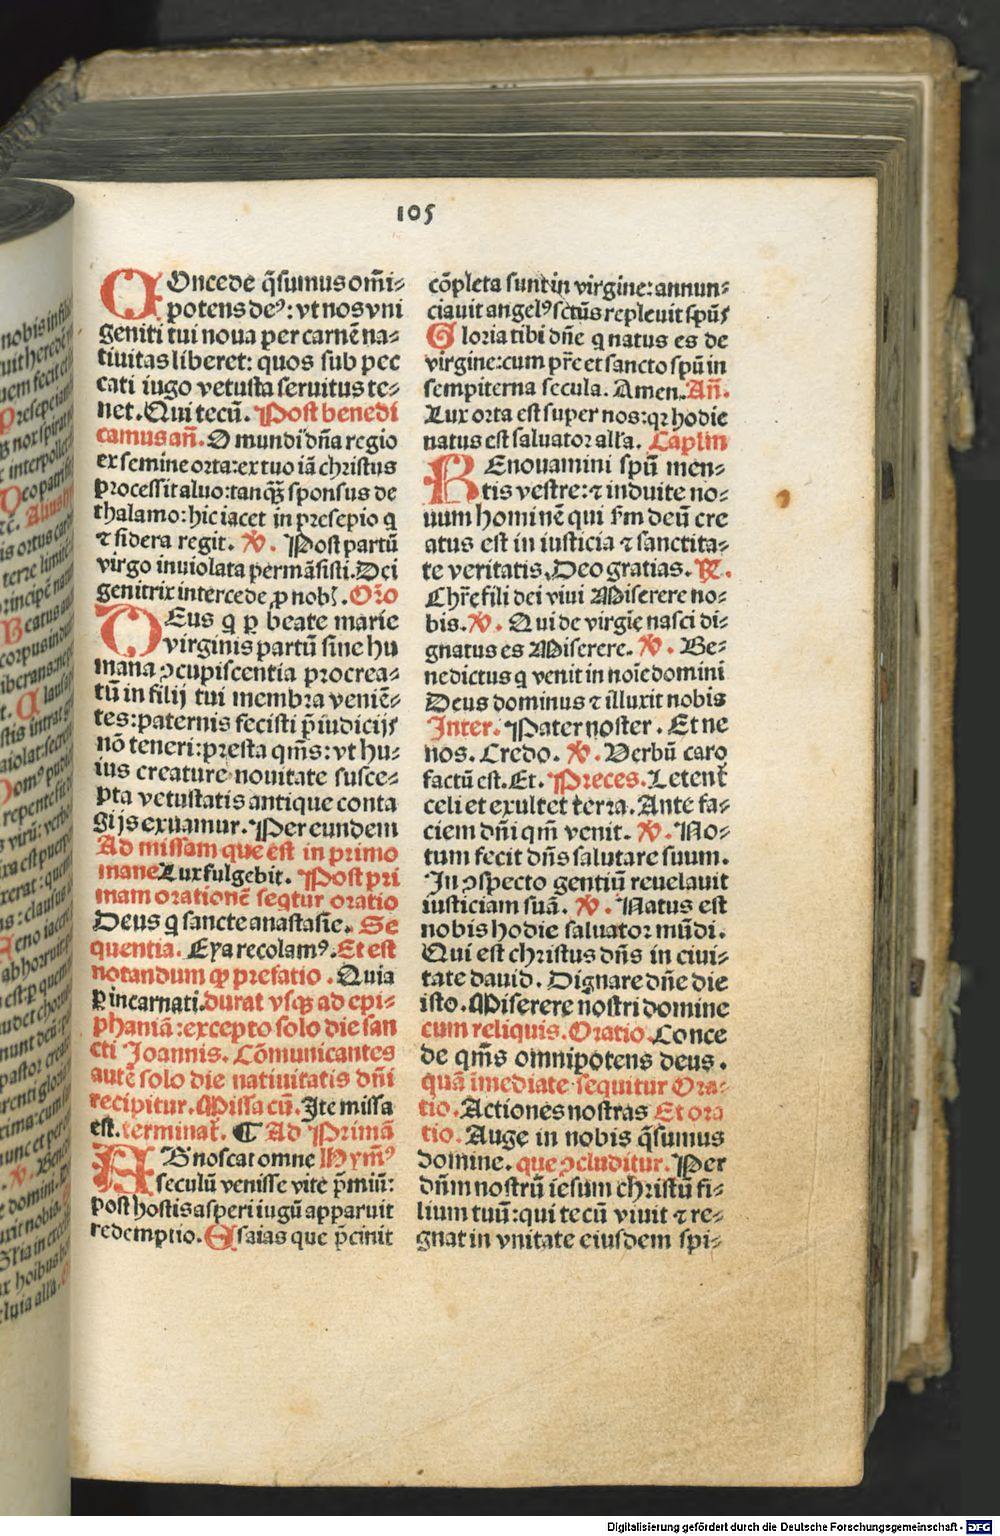 105
COncede q̄sumus om̄i⸗
potens deꝰ: vt nos vni
geniti tui noua per carnē na⸗
tiuitas liberet: quos sub pec
cati iugo vetusta seruitus te⸗
net. Qui tecū. Post benedi
camus añ. O mundi dn̄a regio
ex semine orta: ex tuo iā christus
processit aluo: tanqȝ sponsus de
thalamo: hic iacet in presepio q
⁊ sidera regit. ℣. Post partū
virgo inuiolata permāsisti. Dei
genitrix intercede ꝓ nob. Oro
DEus q ꝑ beate marie
virginis partū sine hu
mana ꝯcupiscentia procrea⸗
tū in filij tui membra veniē⸗
tes: paternis fecisti p̄iudicijs
nō teneri: presta qm̄s: vt hu⸗
ius creature nouitate susce⸗
pta vetustatis antique conta
gijs exuamur. Per eundem
Ad missam que est in primo
mane Lux fulgebit. Post pri
mam orationē seqtur oratio
Deus q sancte anastasie. Se
quentia. Eya recolamꝰ. Et est
notandum ꝙ prefatio. Quia
ꝑ incarnati. durat vsqȝ ad epi⸗
phaniā: excepto solo die san
cti Joannis. Cōmunicantes
autē solo die natiuitatis dn̄i
recipitur. Missa cū. Ite missa
est. terminat̄. ¶ Ad Primā
AB noscat omne Hymꝰ
seculū venisse vite p̄miū:
post hostis asperi iugū apparuit
redemptio. Esaias que p̄cinit
cōpleta sunt in virgine: annun⸗
ciauit angelꝰ sctūs repleuit spūs
Gloria tibi dn̄e q natus es de
virgine: cum pr̄e et sancto spū in
sempiterna secula. Amen. Añ.
Lux orta est super nos: qꝛ hodie
natus est saluator alla. Caplm
REnouamini spū men⸗
tis vestre: ⁊ induite no⸗
uum hominē qui s̄m deū cre
atus est in iusticia ⁊ sanctita⸗
te veritatis. Deo gratias. ℟.
Chr̄e fili dei viui Miserere no⸗
bis. ℣. Qui de virgīe nasci di⸗
gnatus es Miserere. ℣. Be⸗
nedictus q venit in noīe domini
Deus dominus ⁊ illuxit nobis
Inter. Pater noster. Et ne
nos. Credo. ℣. Verbū caro
factū est. Et. Preces. Letent̄
celi et exultet terra. Ante fa⸗
ciem dn̄i qm̄ venit. ℣. No⸗
tum fecit dn̄s salutare suum.
In ꝯspecto gentiū reuelauit
iusticiam suā. ℣. Natus est
nobis hodie saluator mūdi.
Qui est christus dn̄s in ciui⸗
tate dauid. Dignare dn̄e die
isto. Miserere nostri domine
cum reliquis. Oratio. Conce
de qm̄s omnipotens deus.
quā imediate sequitur Ora⸗
tio. Actiones nostras Et ora
tio. Auge in nobis q̄sumus
domine. que ꝯcluditur. Per
dn̄m nostrū iesum christū fi⸗
lium tuū: qui tecū viuit ⁊ re⸗
gnat in vnitate eiusdem spi⸗
Digitalisierung gefördert durch die Deutsche Forschungsgemeinschaft - DFG